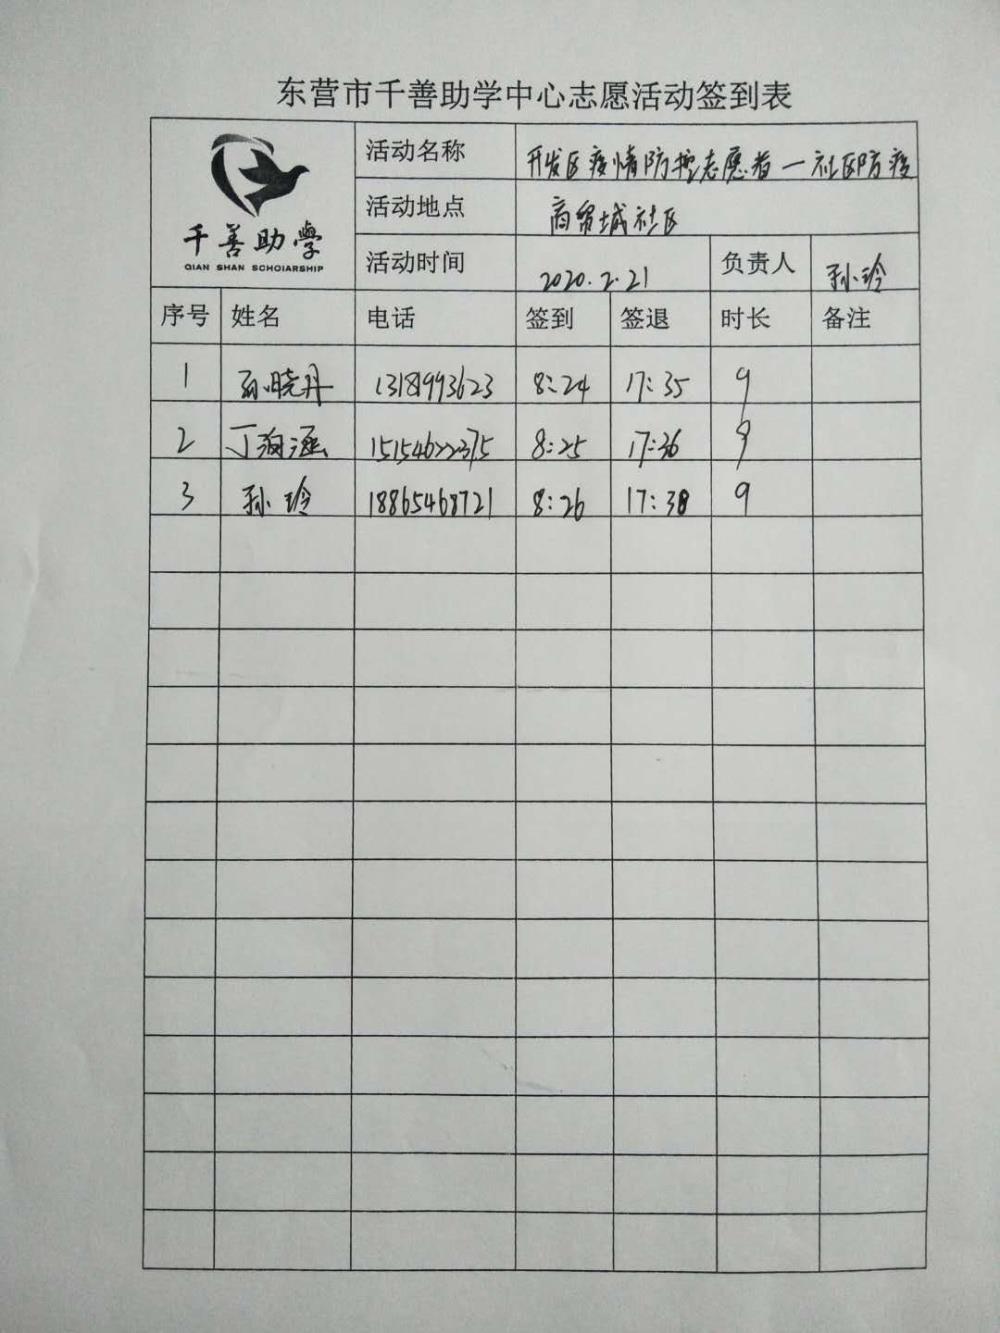 东营市千善助学中心志愿活动签到表
千善助學
QIAN SHAN SCHOIARSHIP
活动名称 开发区疫情防控志愿者一社区防疫
活动地点 商贸城社区
活动时间 2020.2.21 负责人 孙玲
序号 姓名 电话 签到 签退 时长 备注
1 孙晓丹 13181993623 8:24 17:35 9
2 丁海涵 15154622375 8:25 17:36 9
3 孙玲 18865468721 8:26 17:38 9